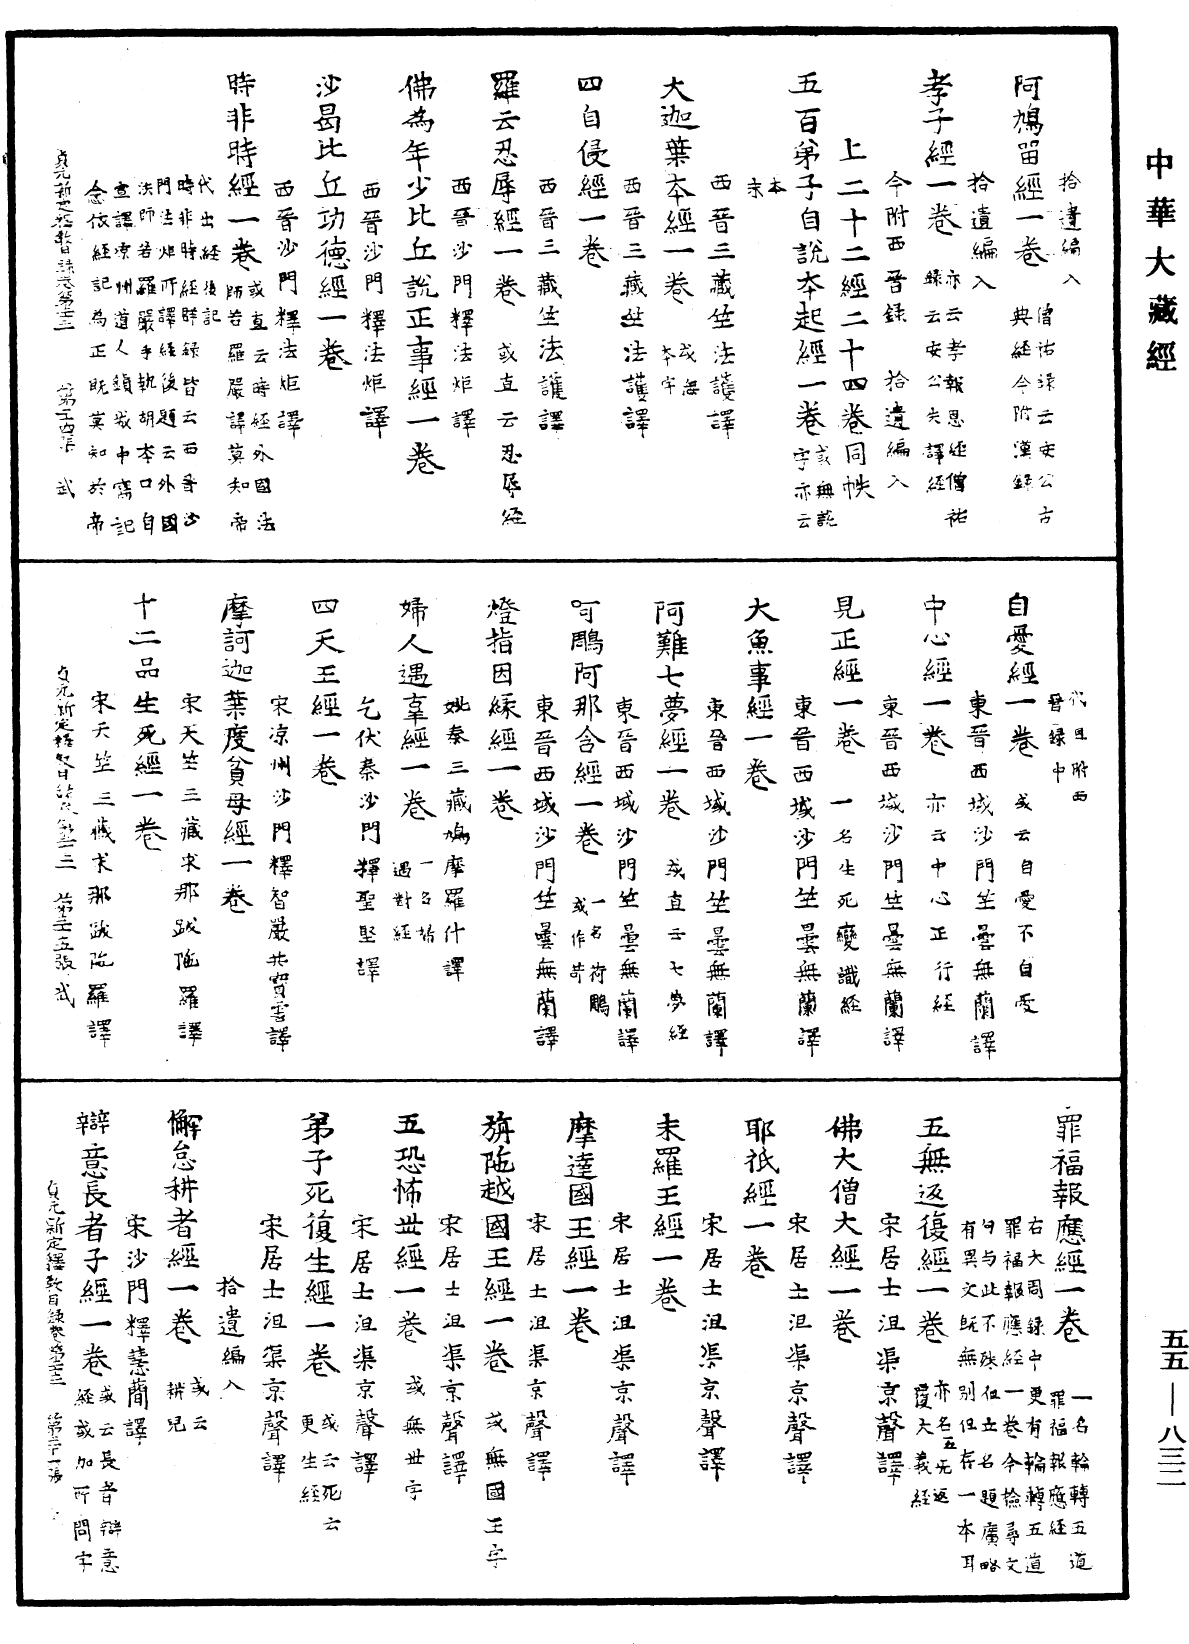 中華大藏經
阿鳩留經一卷 僧祐錄云安公古典經今附漢錄
拾遺編入
孝子經一卷 亦云孝報恩經僧祐錄云安公失譯經
今附西晉錄 拾遺編入
上二十二經二十四卷同帙
五百弟子自說本起經一卷 或無說字亦云本末
西晉三藏竺法護譯
大迦葉本經一卷 或無本字
西晉三藏竺法護譯
四自侵經一卷
西晉三藏竺法護譯
羅云忍辱經一卷 或直云忍辱經
西晉沙門釋法炬譯
佛為年少比丘說正事經一卷
西晉沙門釋法炬譯
沙曷比丘功德經一卷
西晉沙門釋法炬譯
時非時經一卷 或直云時經外國法師若羅嚴譯莫知帝
代出經後記
時非時經群錄皆云西晉沙
門法炬所譯經後題云外國
法師若羅嚴手執胡本口自
宣譯涼州道人䦆城中寫記
念依經記為正既莫知於帝
貞元新定釋教目錄卷第二十三 第二十四張 武
代且附西晉錄中
自愛經一卷 或云自愛不自愛
東晉西域沙門竺曇無蘭譯
中心經一卷 亦云中心正行經
東晉西域沙門竺曇無蘭譯
見正經一卷 一名生死變識經
東晉西域沙門竺曇無蘭譯
大魚事經一卷
東晉西域沙門竺曇無蘭譯
阿難七夢經一卷 或直云七夢經
東晉西域沙門竺曇無蘭譯
呵鵰阿那含經一卷 一名荷鵰或作苛
東晉西域沙門竺曇無蘭譯
燈指因緣經一卷
姚秦三藏鳩摩羅什譯
婦人遇辜經一卷 一名婦遇對經
乞伏秦沙門釋聖堅譯
四天王經一卷
宋涼州沙門釋智嚴共寶雲譯
摩訶迦葉度貧母經一卷
宋天竺三藏求那跋陁羅譯
十二品生死經一卷
宋天竺三藏求那跋陁羅譯
貞元新定釋教目錄卷第二十三 第二十五張 武
罪福報應經一卷 一名輪轉五道罪福報應經
右大周錄中更有輪轉五道
罪福報應經一卷今撿尋文
句与此不殊但立名題廣略
有異文既無別但存一本耳
五無返復經一卷 亦名五无返復大義經
宋居士沮渠京聲譯
佛大僧大經一卷
宋居士沮渠京聲譯
耶祇經一卷
宋居士沮渠京聲譯
末羅王經一卷
宋居士沮渠京聲譯
摩達國王經一卷
宋居士沮渠京聲譯
旃陁越國王經一卷 或無國王字
宋居士沮渠京聲譯
五恐怖世經一卷 或無世字
宋居士沮渠京聲譯
弟子死復生經一卷 或云死云更生經
宋居士沮渠京聲譯
拾遺編入
懈怠耕者經一卷 或云耕兒
宋沙門釋慧簡譯
辯意長者子經一卷 或云長者辯意經或加所問字
貞元新定釋教目錄卷第二十三 第二十一張
五五—八三二